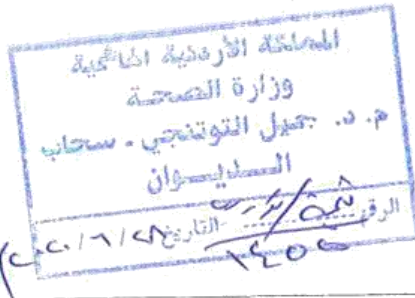 المملكة الأردنية الهاشمية
وزارة الصحة
م. د. جميل التوتنجي - سحاب
الديوان
الرقم التاريخ
١٤٥٥